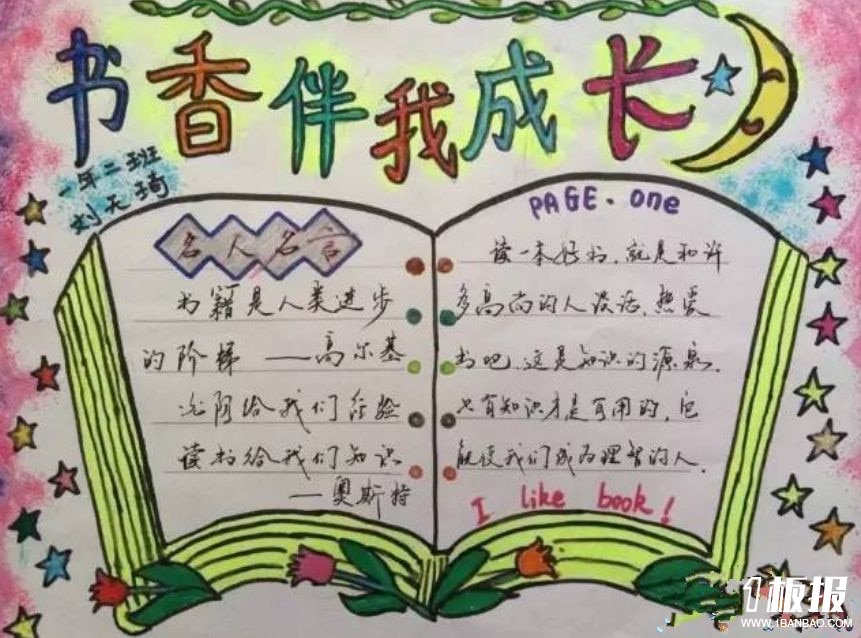 书香伴我成长
一年二班
刘天琦
名人名言
书籍是人类进步
的阶梯——高尔基
光阴给我们经验
读书给我们知识
——奥斯特
PAGE·one
读一本好书,就是和许
多高尚的人谈话,热爱
书吧,这是知识的源泉,
只有知识才是有用的,它
能使我们成为理智的人.
I like book!
1板报
WWW.1BANBAO.COM